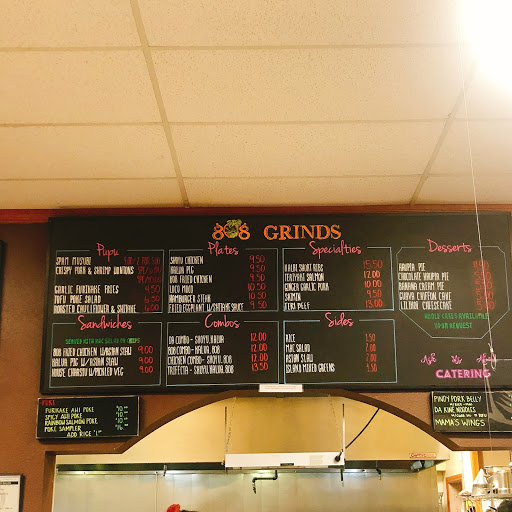 808 GRINDS
Pupu
SPAM MUSUBI
CRISPY PORK & SHRIMP WONTONS
GARLIC FURIKAKE FRIES 4.50
TOFU POKE SALAD 6.50
ROASTED CAULIFLOWER & SHIITAKE 6.50
Sandwiches
SERVED WITH MAC SALAD OR CHIPS
808 FRIED CHICKEN W/ASIAN SLAW 9.00
KALUA PIG W/ASIAN SLAW 9.00
HOUSE CHARSIU W/PICKLED VEG 9.00
Plates
SHOYU CHICKEN 9.50
KALUA PIG 9.50
808 FRIED CHICKEN 9.50
LOCO MOCO 9.50
HAMBURGER STEAK 10.50
FRIED EGGPLANT W/SHIITAKE SAUCE 9.50
Combos
DA COMBO - SHOYU, KALUA 12.00
808 COMBO - KALUA, 808 12.00
CHICKEN COMBO - SHOYU, 808 12.00
TRIFECTA - SHOYU, KALUA, 808 13.50
Specialties
KALBI SHORT RIBS 15.50
TERIYAKI SALMON 12.00
GINGER GARLIC PORK 10.00
SAIMIN 9.50
TERI BEEF 13.00
Sides
RICE 1.50
MAC SALAD 2.00
ASIAN SLAW 2.00
ISLAND MIXED GREENS 1.50
Desserts
HAUPIA PIE
CHOCOLATE HAUPIA PIE
BANANA CREAM PIE
GUAVA CHIFFON CAKE
LILIKOI CHEESECAKE
WHOLE CAKES AVAILABLE
UPON REQUEST
CATERING
POKE
FURIKAKE AHI POKE
SPICY AHI POKE
RAINBOW SALMON POKE
POKE SAMPLER
ADD RICE
PINOY PORK BELLY
DA KINE NOODLES
MAMA'S WINGS